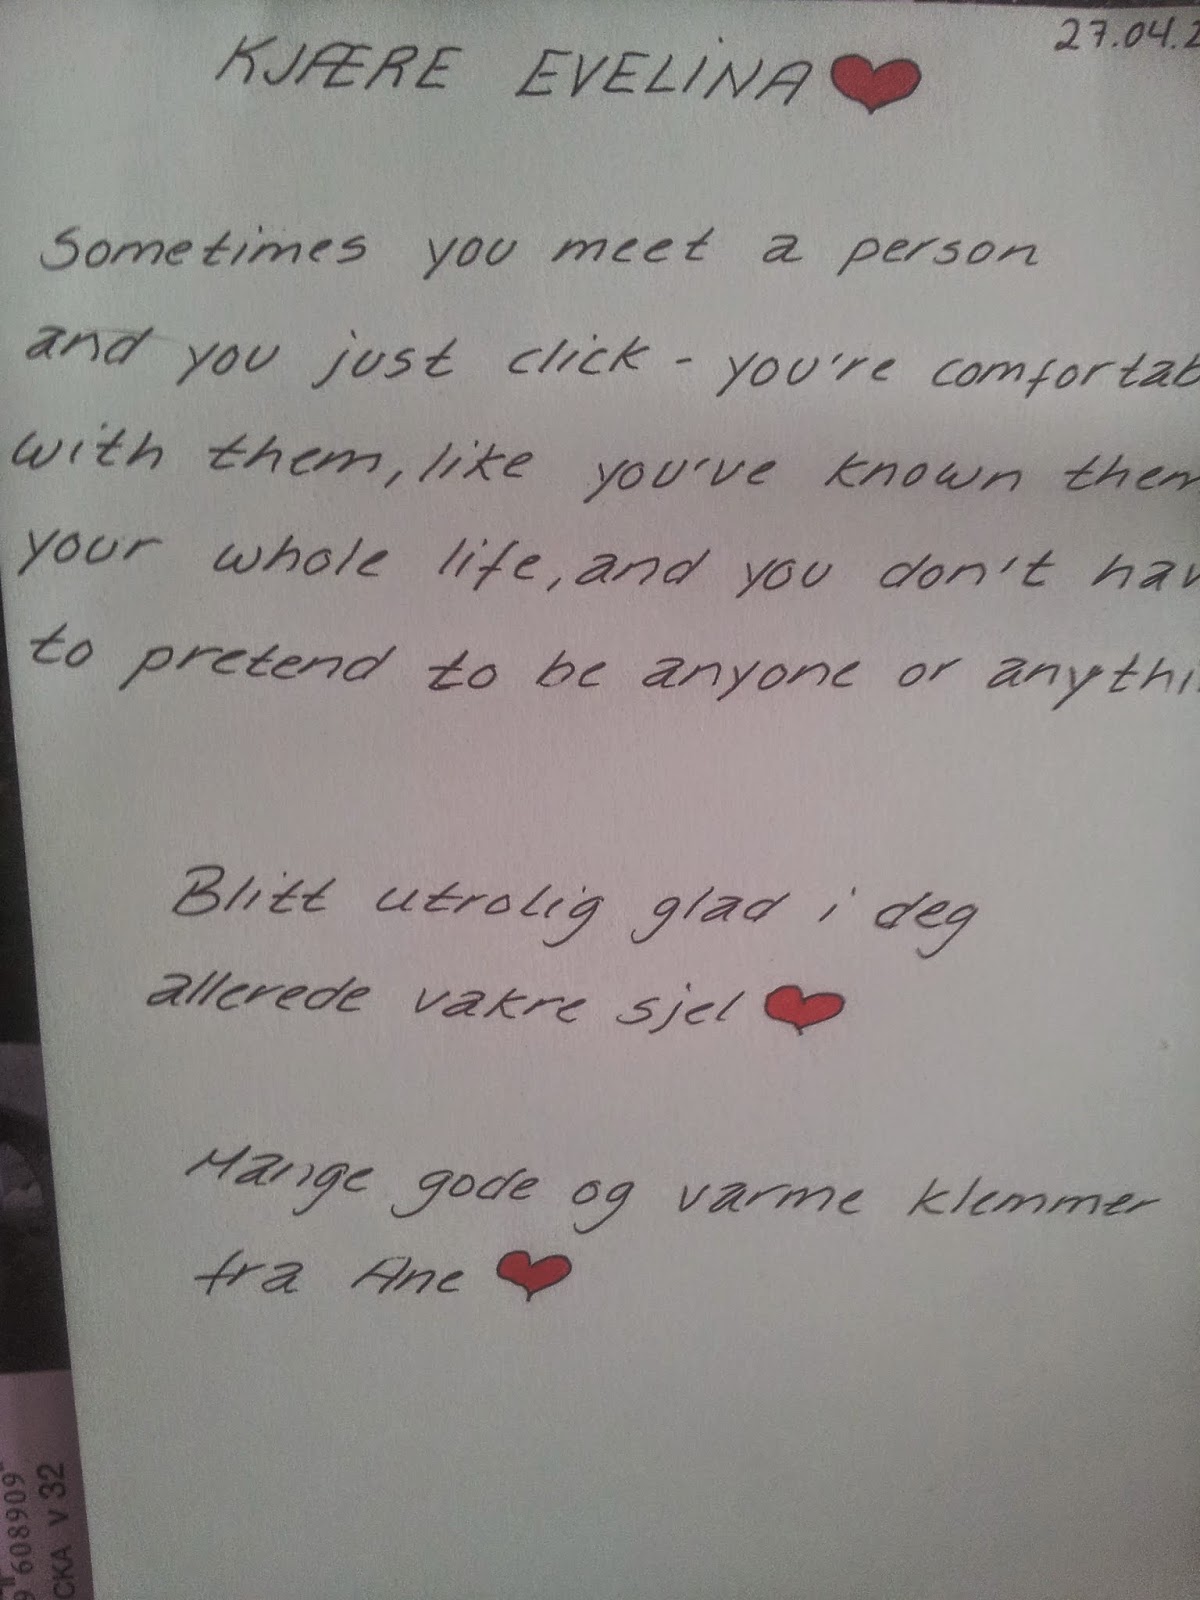 27.04.2
KJÆRE EVELINA
Sometimes you meet a person
and you just click - you're comfortab
with them, like you've known them
your whole life, and you don't hav
to pretend to be anyone or anythi
Blitt utrolig glad i deg
allerede vakre sjel
Mange gode og varme klemmer
fra Ane
9 608909
CKA V 32